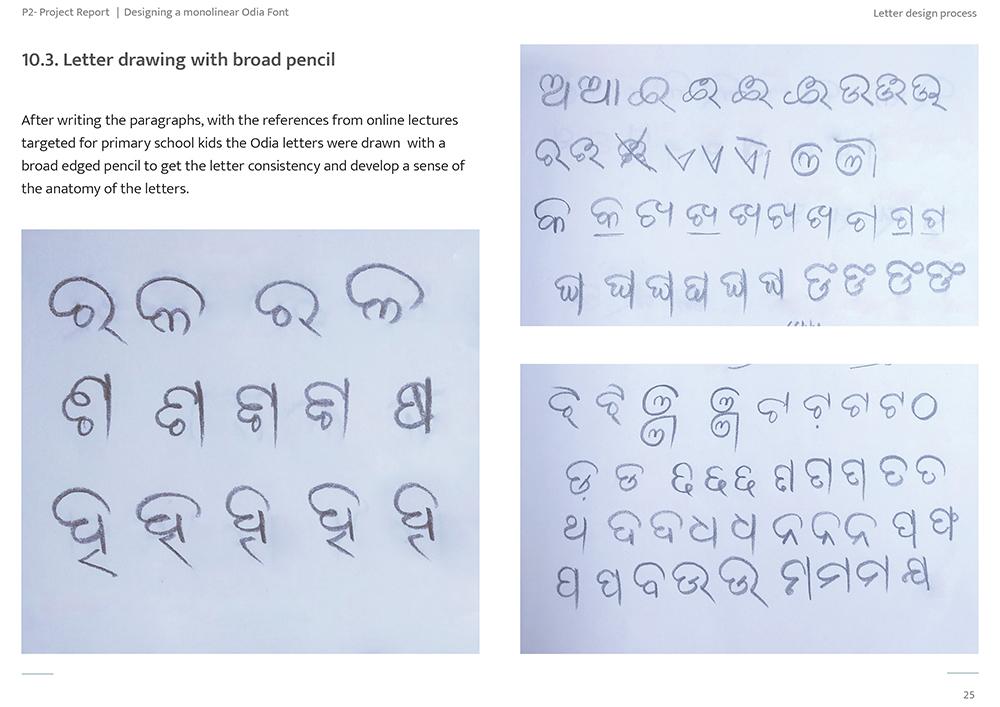 P2- Project Report | Designing a monolinear Odia Font
Letter design process
10.3. Letter drawing with broad pencil
After writing the paragraphs, with the references from online lectures
targeted for primary school kids the Odia letters were drawn with a
broad edged pencil to get the letter consistency and develop a sense of
the anatomy of the letters.
ଶ ଶ ଷ
ହ ହ ହ ହ ହ
ଅ ଆ ଇ ଈ ଈ ଈ ଉ ଊ ଊ
ଏ ଏ ଐ ଓ ଔ
କ କ ଖ ଖ ଖ ଖ ଖ ଗ ଗ ଗ
ଘ ଘ ଘ ଘ ଘ ଘ ଙ ଙ ଙ ଙ
ଝ ଝ ଞ ଞ ଟ ଟ ଟ ଟ ଠ
ଡ଼ ଡ ଢ ଢ ଢ ଣ ଣ ଣ ତ ତ
ଥ ଦ ଦ ଧ ଧ ନ ନ ନ ପ ଫ
ପ ପ ବ ଭ ଭ ମ ମ ମ
25